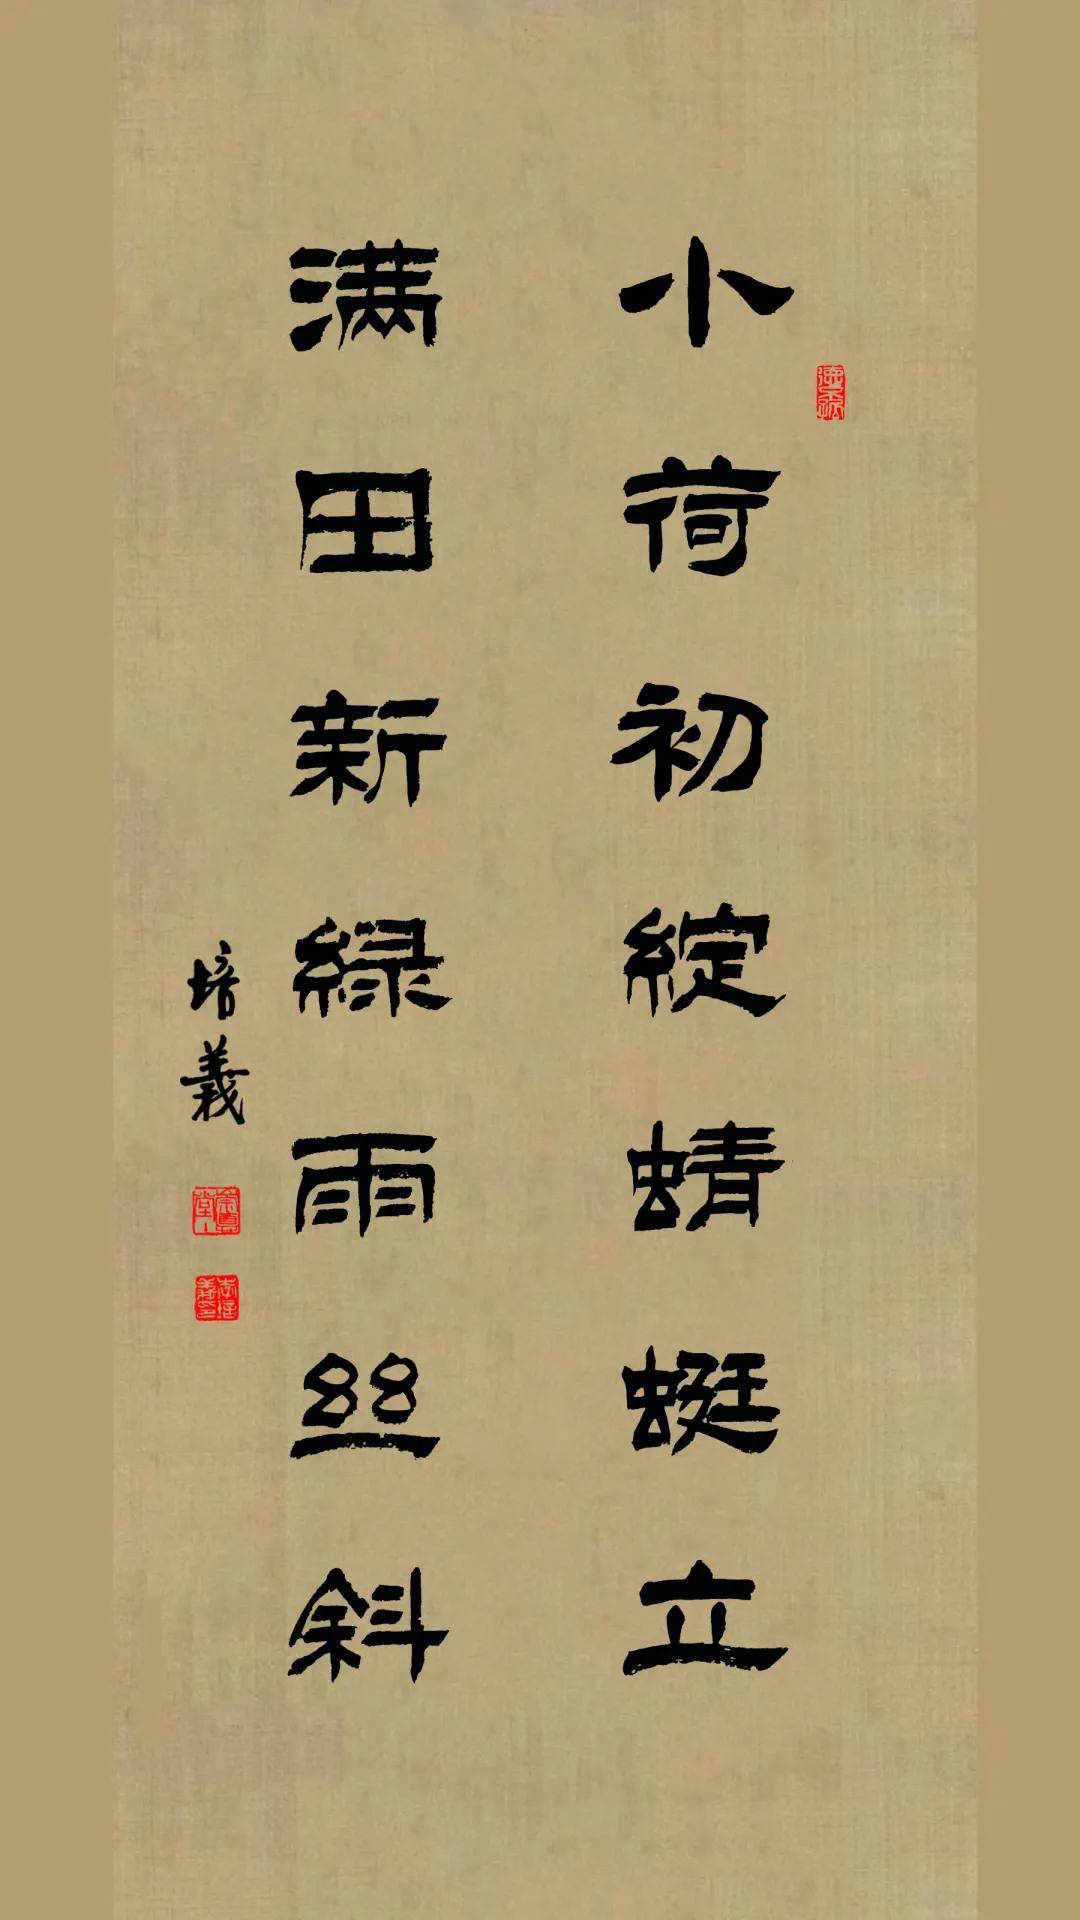 小荷初綻蜻蜓立
满田新緑雨丝斜
培義